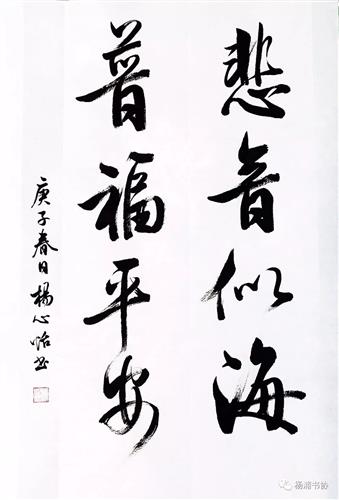 悲音似海
普福平安
庚子春日楊心怡书
杨浦书协